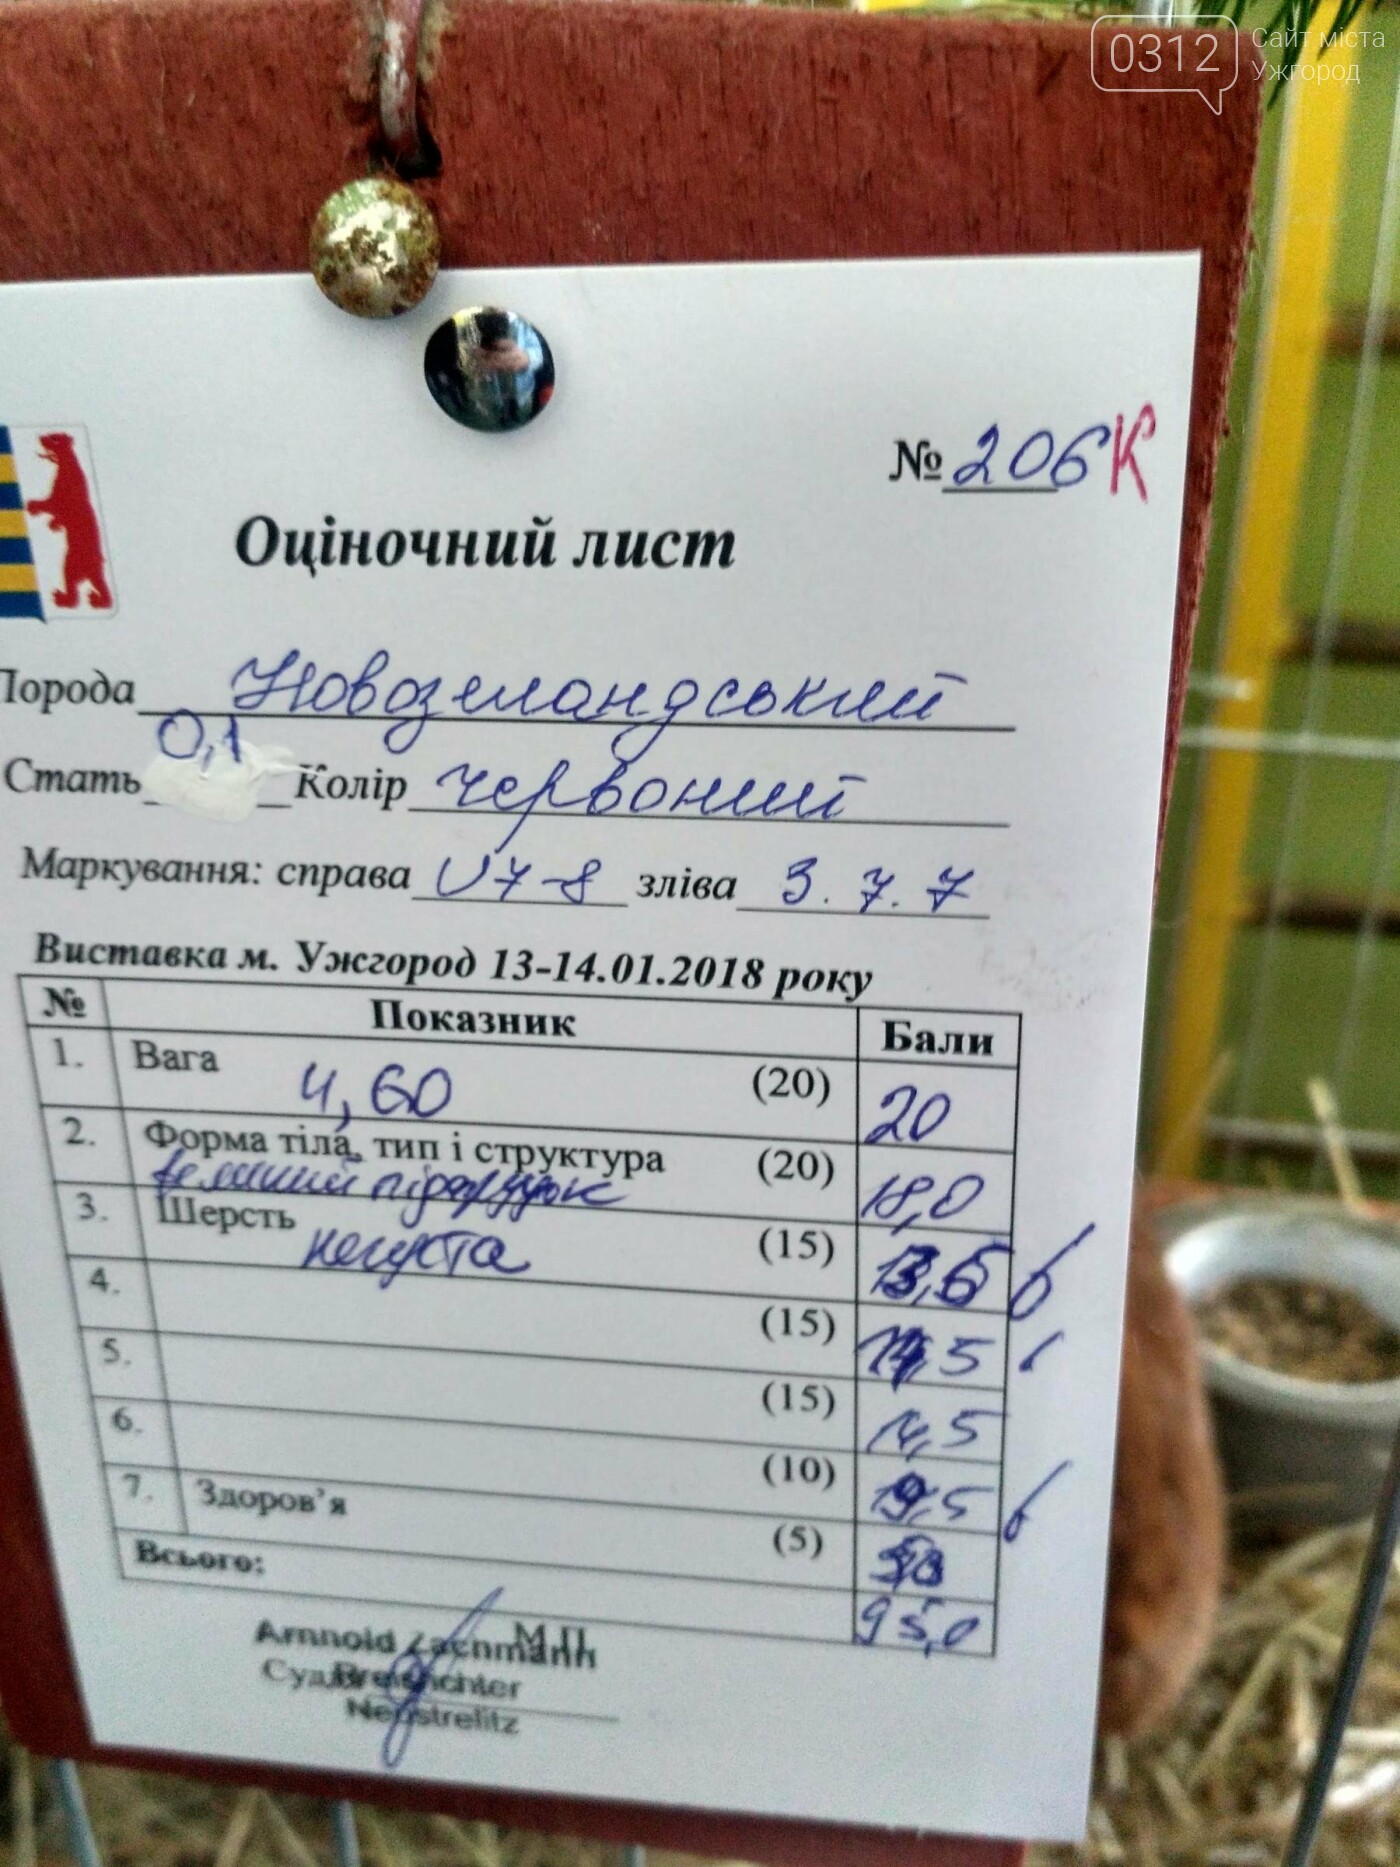 0312
Сайт міста
Ужгород
№ 206К
Оціночний лист
Порода Новозеландський
0,1
Стать Колір червоний
Маркування: справа U 7-8 зліва 3.7.7
Виставка м. Ужгород 13-14.01.2018 року
№ Показник Бали
1. Вага 4,60 (20) 20
2. Форма тіла, тип і структура (20) 18,0
великий підгрудок
3. Шерсть (15) 13,5
не густа
4. (15) 14,5
5. (15) 14,5
6. (10) 9,5
7. Здоров’я (5)
Всього: 95,0
М.П.
Arnnold Lachmann
Суддя Preisrichter
Neustrelitz